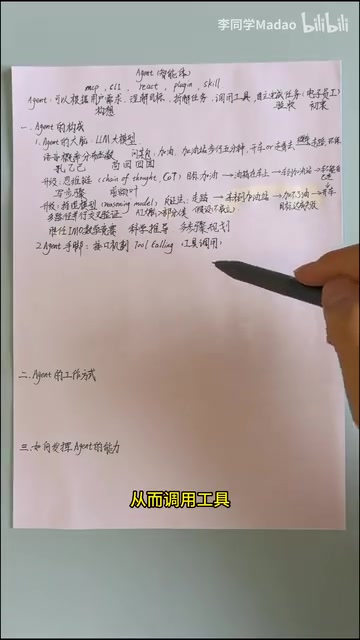 李同学Madao bilibili
Agent(智能体)
mcp, cli, react, plugin, skill
Agent:可以根据用户需求,理解目标,拆解任务,调用工具,直至完成任务(电子员工)
构想 验收 初衷
一、Agent的构成
1.Agent的大脑:LLM大模型
语言概率分布函数 问某AI,加油,加油站步行五分钟,开车or走着去,
孔乙己 茴回囬囘
升级:思维链(chain of thought, CoT)目标:加油→油箱在车上→
写步骤
升级:推理模型(reasoning model),反证法,走路→未到加油站→加不了油→开车
多路径进行交叉验证
胜任IMO数学竞赛 科学推导 多步骤规划
2.Agent手脚:接口机制 Tool Calling (工具调用)
二、Agent的工作方式
三、如何发挥Agent的能力
从而调用工具